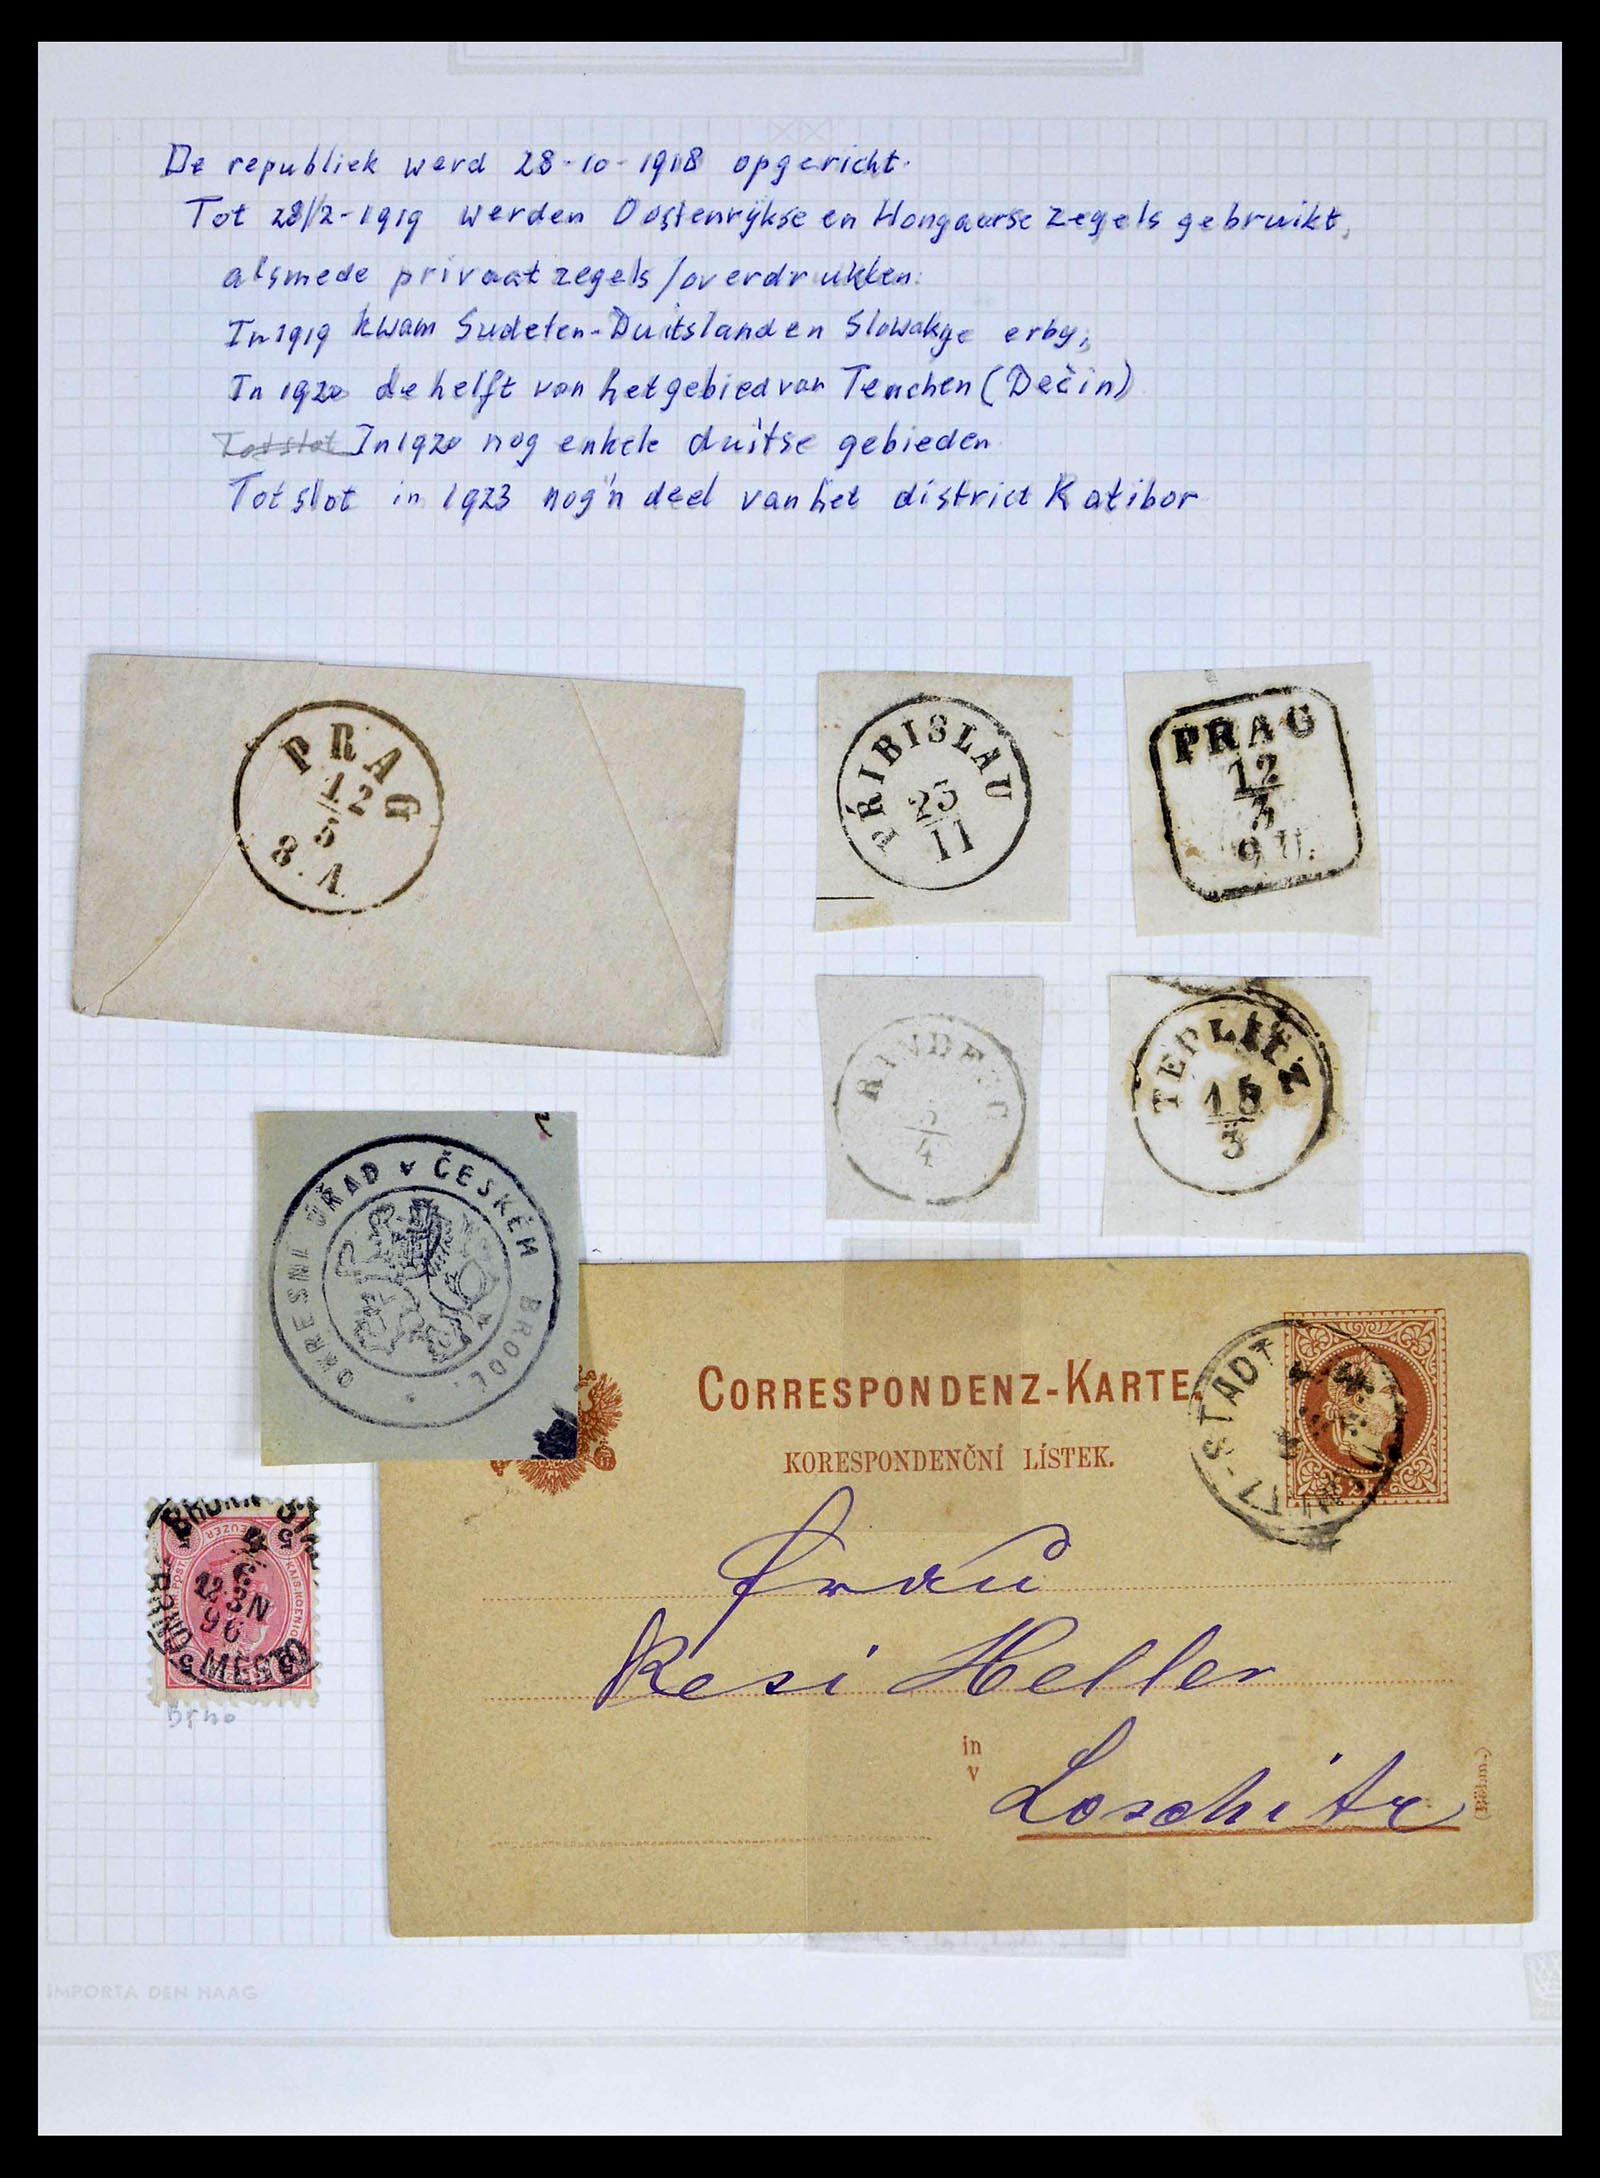 De republiek werd 28-10-1918 opgericht.
Tot 28/2-1919 werden Oostenrijkse en Hongaarse zegels gebruikt,
alsmede privaatzegels/overdrukken.
In 1919 kwam Sudeten-Duitsland en Slowakije erby,
In 1920 de helft van het gebied van Teschen (Dečin)
Tot slot In 1920 nog enkele duitse gebieden
Tot slot in 1923 nog 'n deel van het district Ratibor
PRAG
12
5
8.V.
PŘIBISLAU
25
11
PRAG
12
3
9 U.
4
TEPLITZ
15
3
OKRESNÍ ÚŘAD v ČESKÉM BRODĚ.
CORRESPONDENZ-KARTE.
KORESPONDENČNÍ LÍSTEK.
STADT
Frau
Resi Heller
in
v
Loschitz
(Böhm.)
BRÜNN
5 5
6
12·3N
96
MĚSTO
5 5
Brno
IMPORTA DEN HAAG